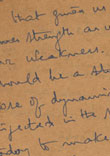 that gives us
strength as w
our weakness.
would be a st
of dynami
injected in the
today to make